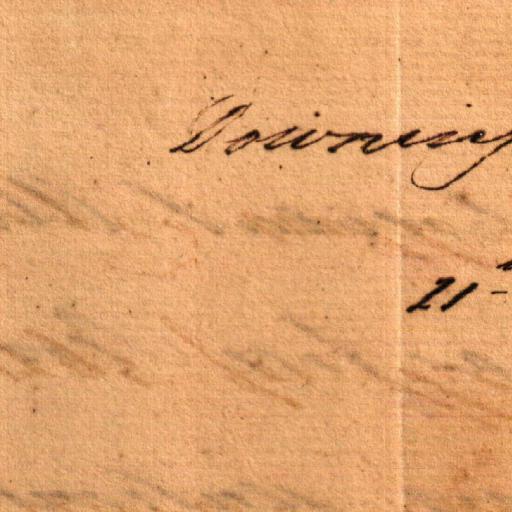 Downing
21